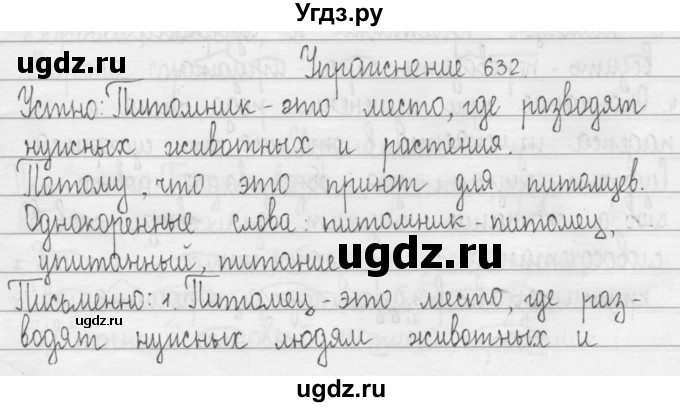 Угдз.ру
Упражнение 632.
Устно: Питомник - это место, где разводят
нужных животных и растения.
Потому, что это приют для питомцев.
Однокоренные слова: питомник-питомец,
упитанный, питание
Письменно: 1. Питомец - это место, где раз-
водят нужных людям животных и
ugdz.ru
ugdz.ru
ugdz.ru
ugdz.ru
ugdz.ru